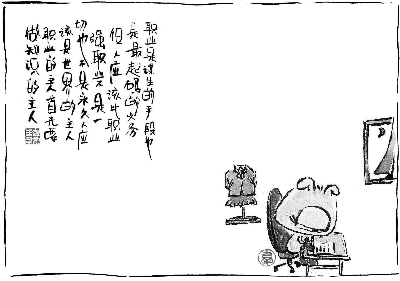 职业是谋生的手段也
是最起码的义务
但人应该比职业
强职业是一
切也不是永久人应
该是世界的主人
职业的主首先要
做知识的主人